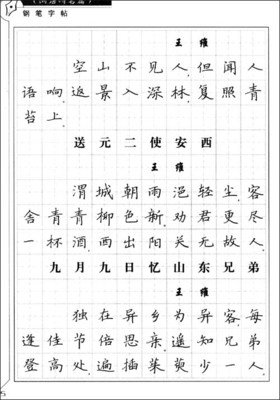 钢笔字帖
王维
空山不见人,但闻人
语响。返景入深林,复照青
苔上。
送元二使安西
王维
渭城朝雨浥轻尘,客
舍青青柳色新。劝君更尽
一杯酒,西出阳关无故人。
九月九日忆山东兄弟
王维
独在异乡为异客,每
逢佳节倍思亲。遥知兄弟
登高处,遍插茱萸少一人